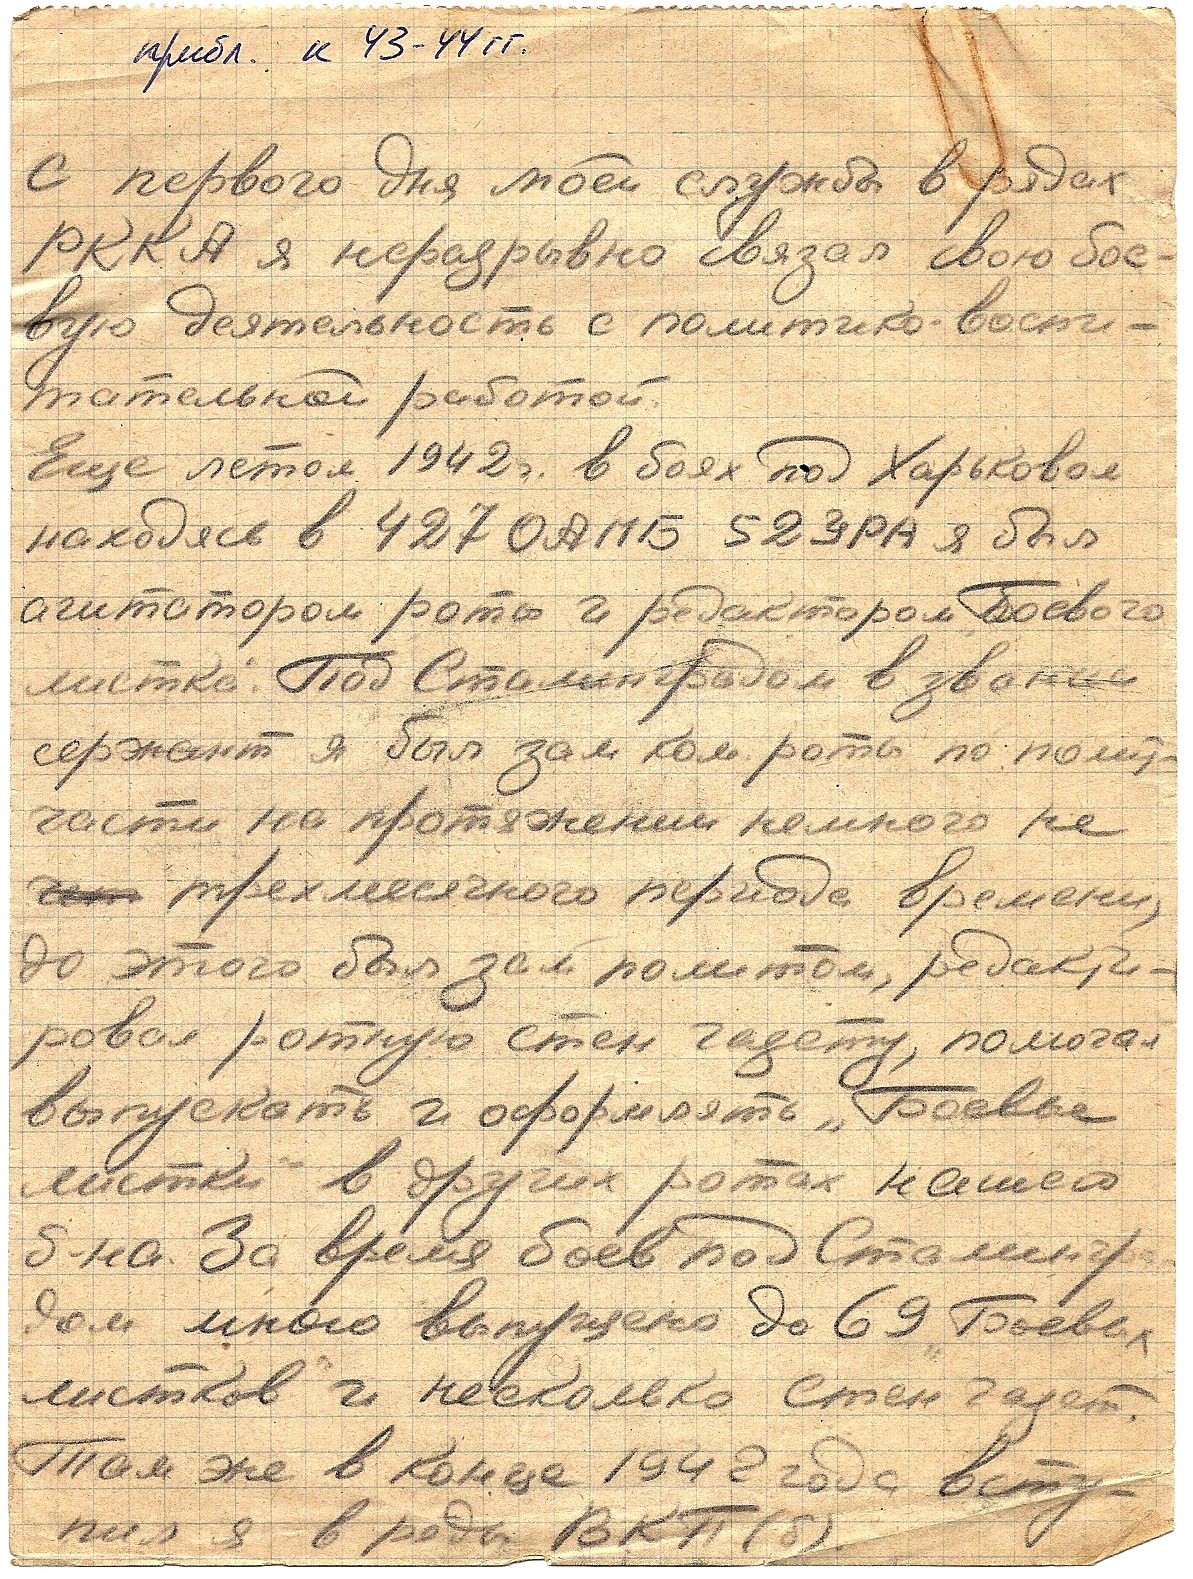 прибл. к 43-44 гг.
С первого дня моей службы в рядах
РККА я неразрывно связал свою бое-
вую деятельность с политико-воспи-
тательной работой.
Еще летом 1942 г. в боях под Харьковом
находясь в 427 ОАПБ 52УРА я был
агитатором роты и редактором „Боевого
листка". Под Сталинградом в звании
сержант я был зам ком. роты по полит-
части на протяжении немного не
трехмесячного периода времени,
до этого был зам политом, редакти-
ровал ротную стен газету, помогал
выпускать и оформлять „Боевые
листки" в других ротах нашего
б-на. За время боев под Сталингра
дом мною выпущено до 69 „Боевых
листков" и несколько стен газет.
Там же в конце 1942 года всту-
пил я в ряды ВКП(б).